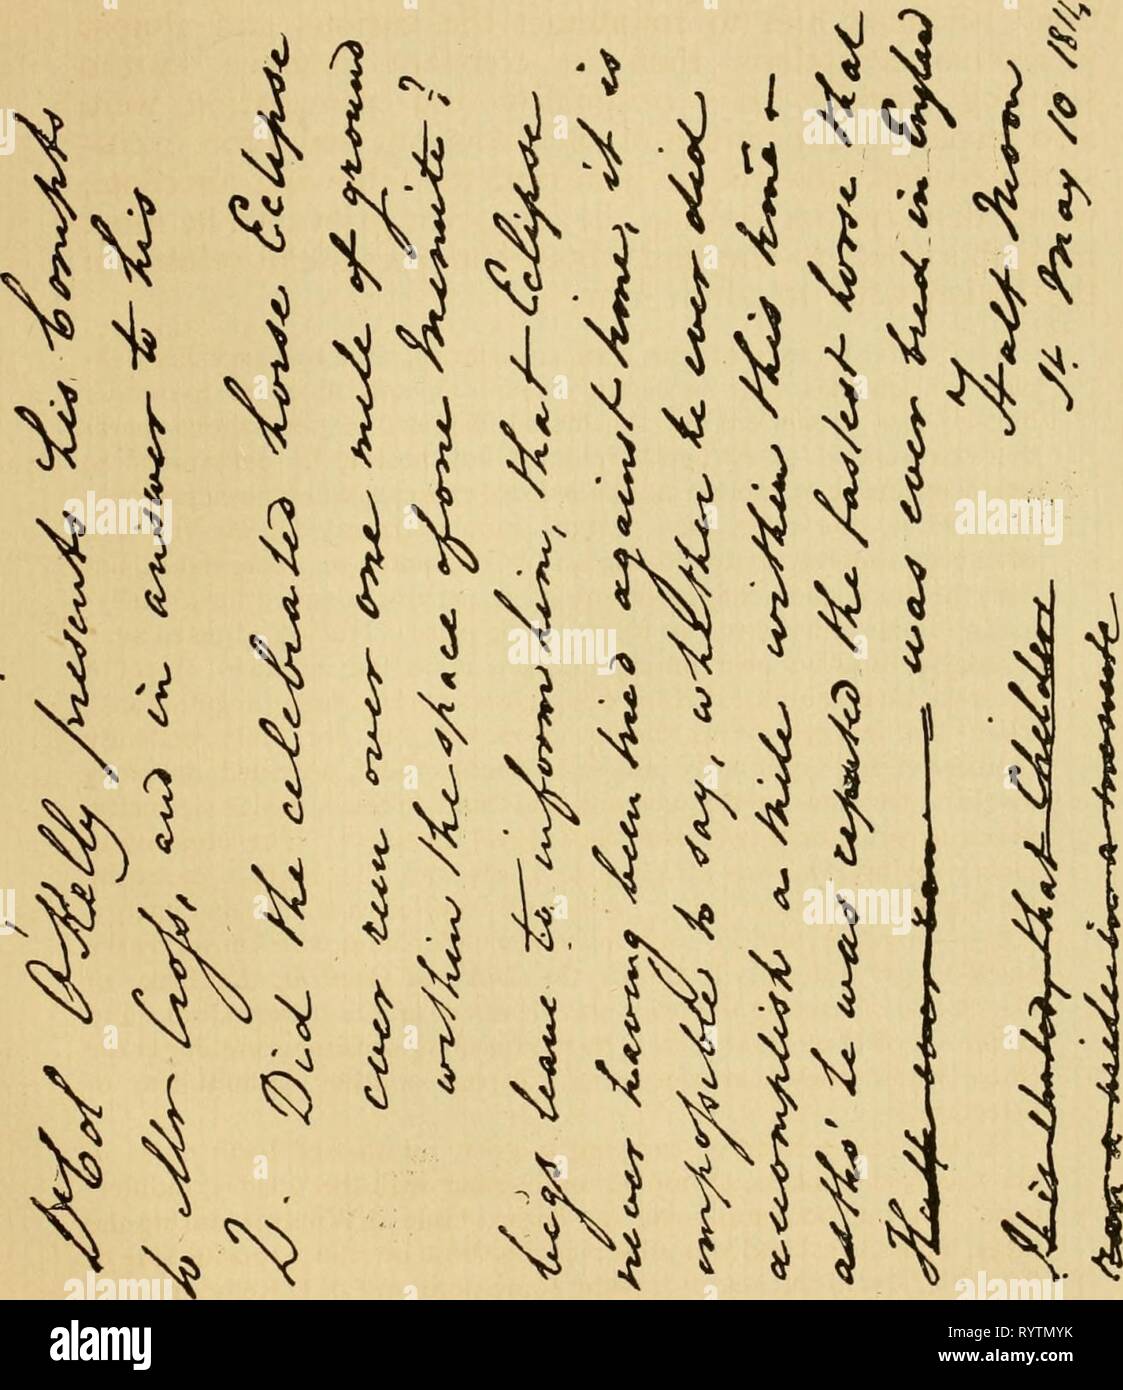 Lt Col O'Kelly presents his Compts
to Mr Cross, and in answer to his
Q. Did the celebrated horse Eclipse
ever run over one mile of ground
within the space of one Minuite?
begs leave to inform him, that Eclipse
never having been tried against time, it is
impossible to say, whether he ever did
accomplish a Mile within this time -
altho' he was reputed the fastest horse that
was ever bred in England
Half Moon
St. May 10 1814
It is stated, that Childers
ran a mile in a minute
alamy
Image ID: RYTMYK
www.alamy.com